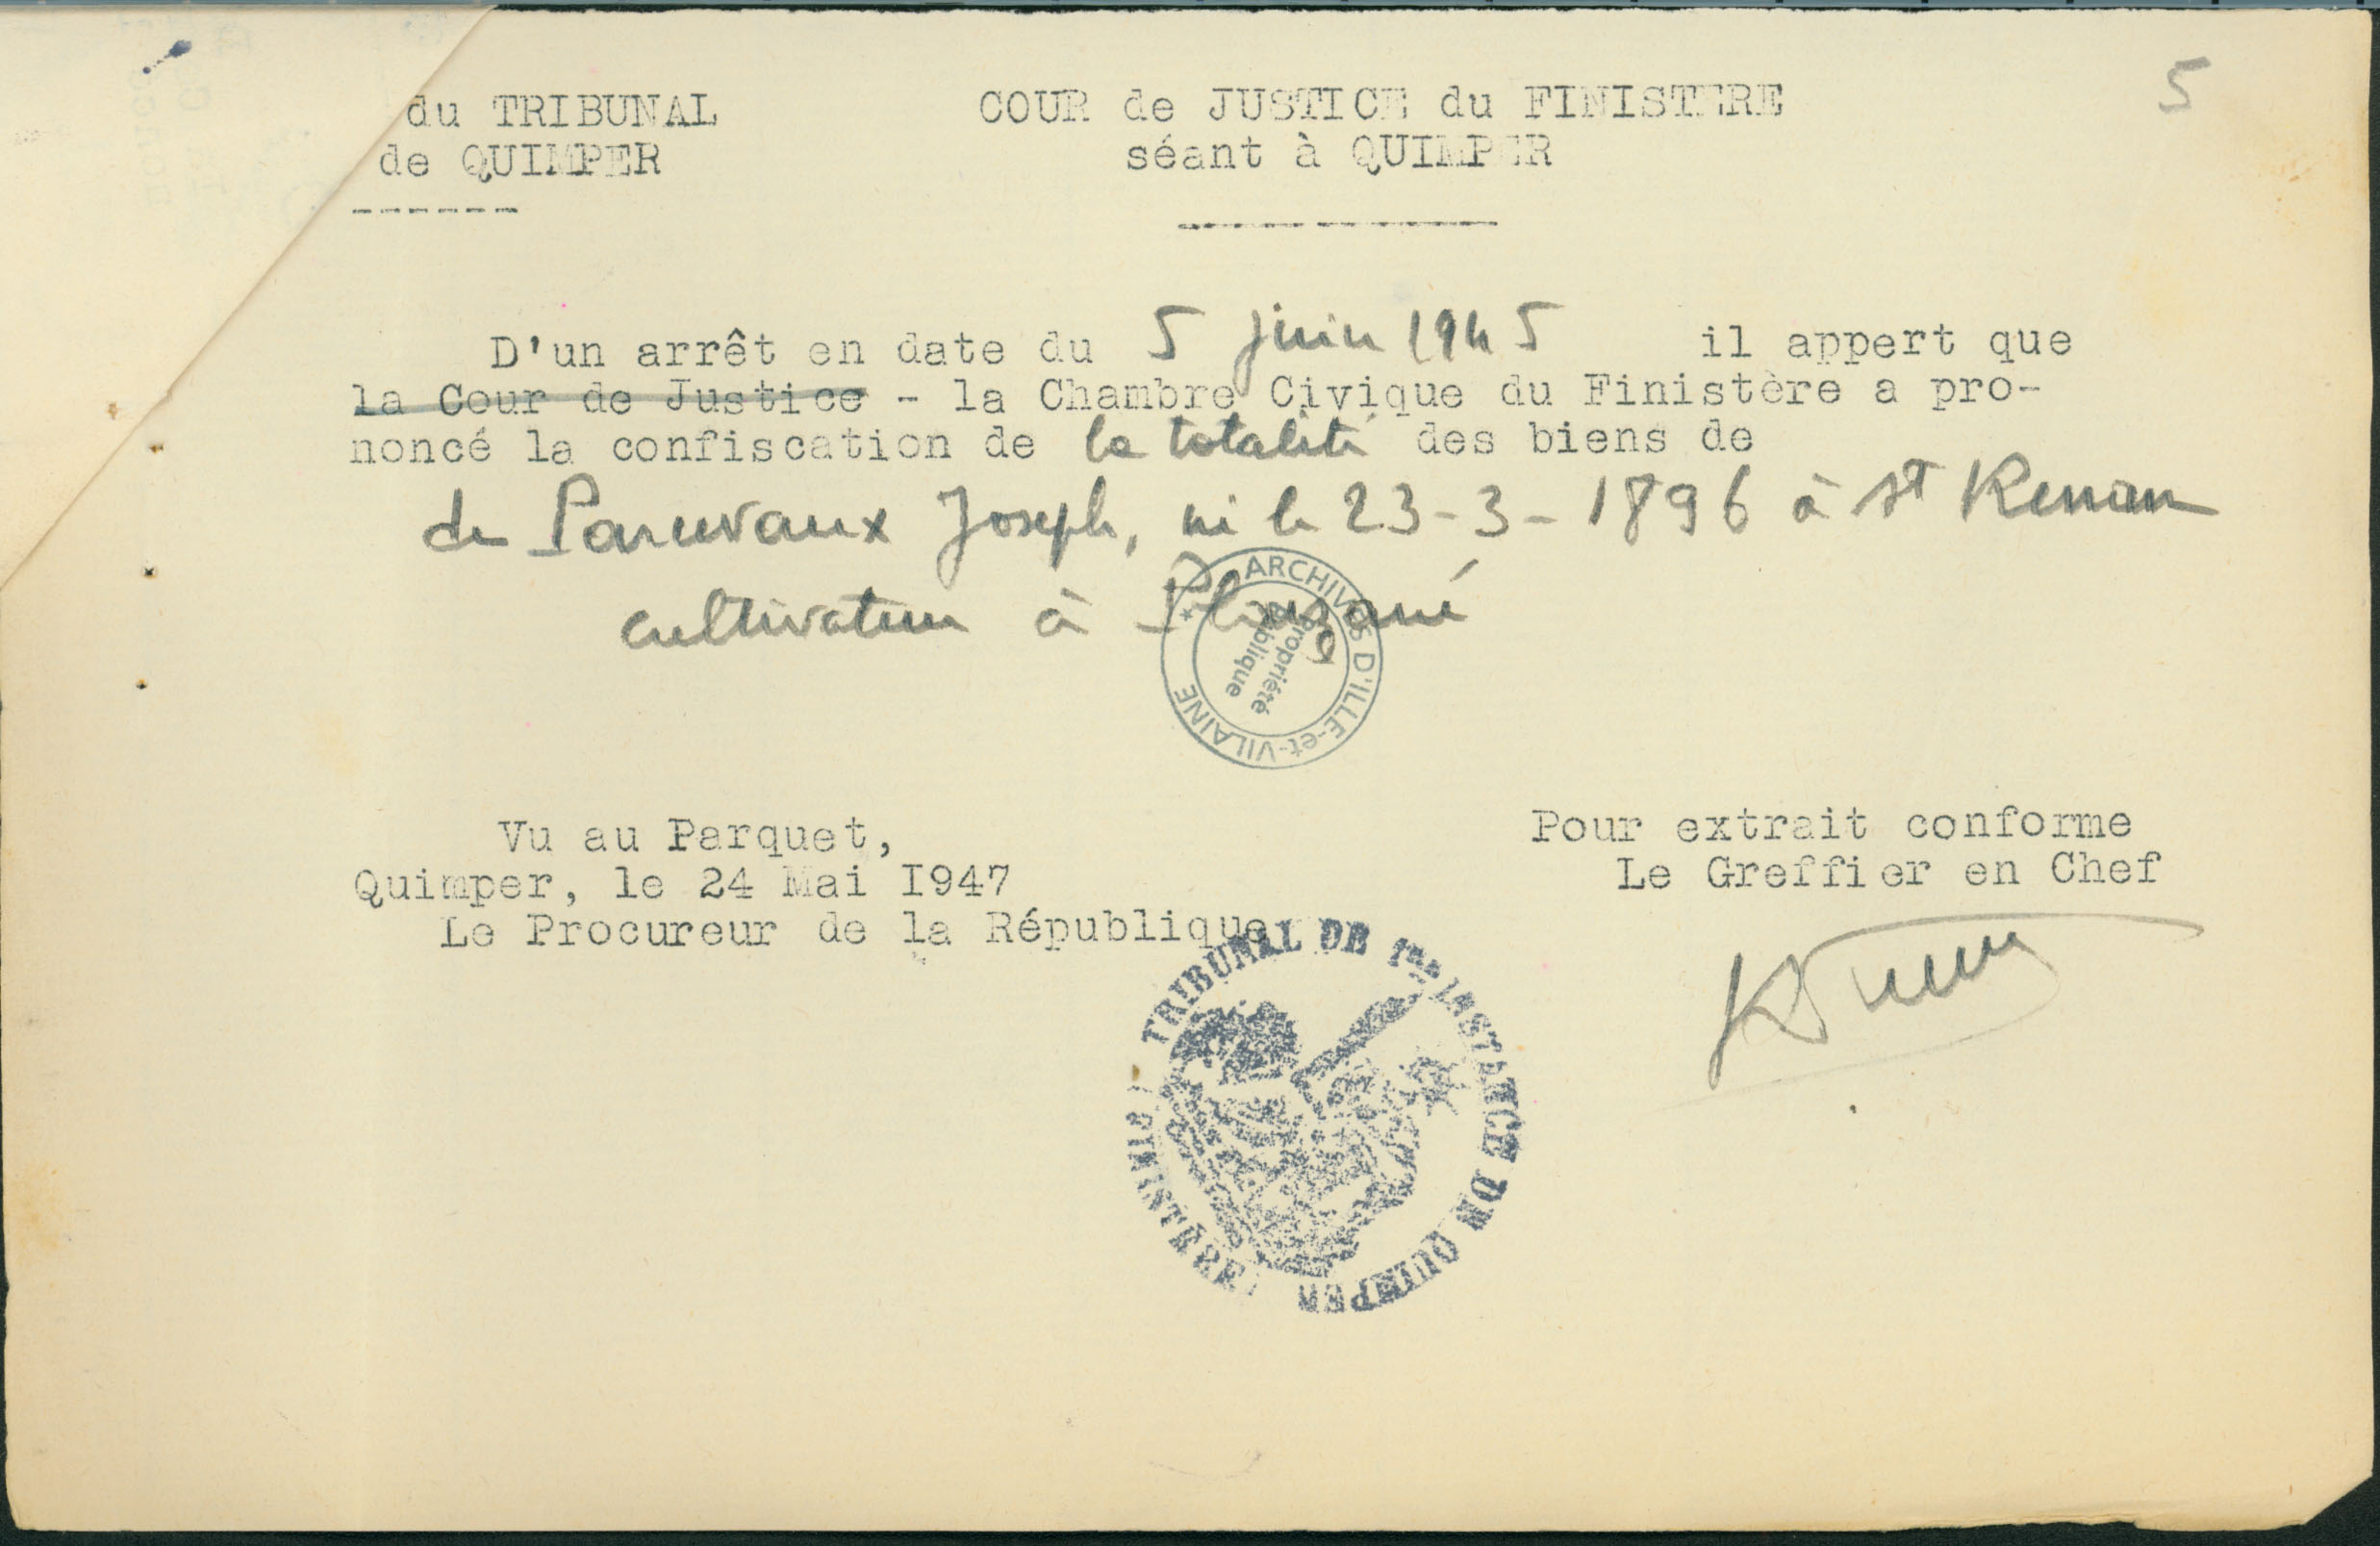 5
du TRIBUNAL
de QUIMPER
COUR de JUSTICE du FINISTERE
séant à QUIMPER
D'un arrêt en date du 5 juin 1945 il appert que
la Cour de Justice - la Chambre Civique du Finistère a pro-
noncé la confiscation de la totalité des biens de
de Parcevaux Joseph, né le 23-3-1896 à St Renan
cultivateur à Plouzané
ARCHIVES D'ILLE-et-VILAINE
Propriété
publique
Vu au Parquet,
Quimper, le 24 Mai I947
Le Procureur de la République
Pour extrait conforme
Le Greffier en Chef
TRIBUNAL DE 1ERE INSTANCE DE QUIMPER (FINISTÈRE)